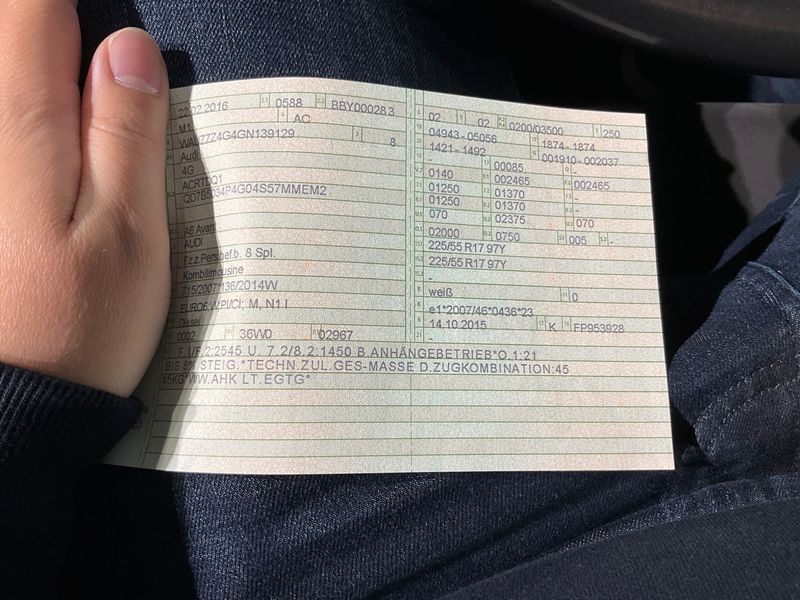 22.02.2016 0588 BBY000283
M1 AC
WAUZZZ4G4GN139129 8
Audi
4G
ACRTDQ1
QD7B5034P4G04S57MMEM2
A6 Avant
AUDI
Fz.z.Pers.bef.b. 8 Spl.
Kombilimousine
715/2007*136/2014W
EURO6,W,PI/CI; M, N1 I
Diesel
0002 36W0 02967
02 02 0200/03500 250
04943-05056 1874-1874
1421-1492 001910-002037
- 00085 -
0140 002465 002465
01250 01370 -
01250 01370 -
070 02375 070
02000 0750 005 -
225/55 R17 97Y
225/55 R17 97Y
-
weiß 0
e1*2007/46*0436*23
14.10.2015 K FP953928
F.1/F.2:2545 U. 7.2/8.2:1450 B.ANHÄNGEBETRIEB*O.1:21
BIS 8% STEIG.*TECHN.ZUL.GES-MASSE D.ZUGKOMBINATION:45
45KG*WW.AHK LT.EGTG*